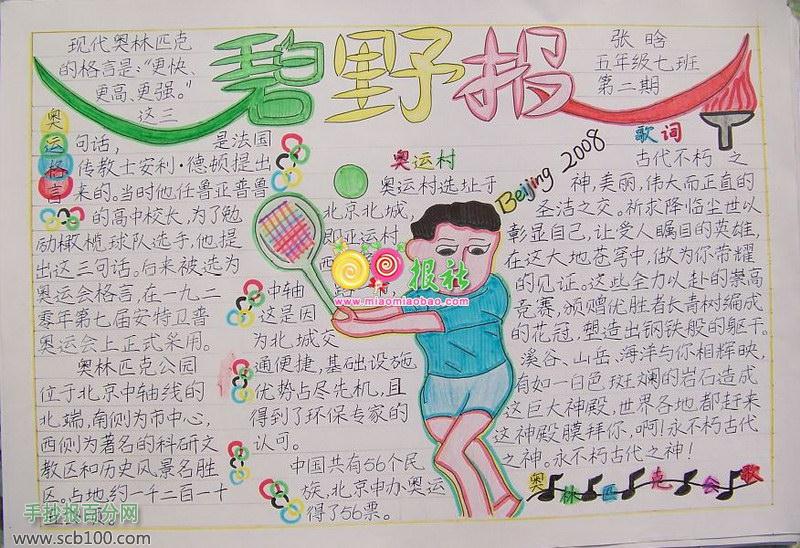 碧野报
张晗
五年级七班
第二期
现代奥林匹克
的格言是:“更快、
更高、更强。”
这三
奥运格言
句话,是法国
传教士安利·德顿提出
来的。当时他任鲁亚普鲁
的高中校长,为了勉
励橄榄球队选手,他提
出这三句话。后来被选为
奥运会格言,在一九二
零年第七届安特卫普
奥运会上正式采用。
奥林匹克公园
位于北京中轴线的
北端,南侧为市中心,
西侧为著名的科研文
教区和历史风景名胜
区。占地约一千二百一十
奥运村
奥运村选址于
北京北城,
即亚运村
西
中轴路
这是因
为北城交
通便捷,基础设施
优势占尽先机,且
得到了环保专家的
认可。
中国共有56个民
族,北京申办奥运
得了56票。
Beijing 2008
歌词
古代不朽之
神,美丽,伟大而正直的
圣洁之父。祈求降临尘世以
彰显自己,让受人瞩目的英雄,
在这大地苍穹中,做为你荣耀
的见证。这些全力以赴的崇高
竞赛,颁赠优胜者长青树编成
的花冠,塑造出钢铁般的躯干。
溪谷、山岳、海洋与你相辉映,
有如一白色斑斓的岩石造成
这巨大神殿,世界各地都赶来
这神殿膜拜你,啊!永不朽古代
之神。永不朽古代之神!
奥林匹克会歌
报社
www.miaomiaobao.com
手抄报百分网
www.scb100.com